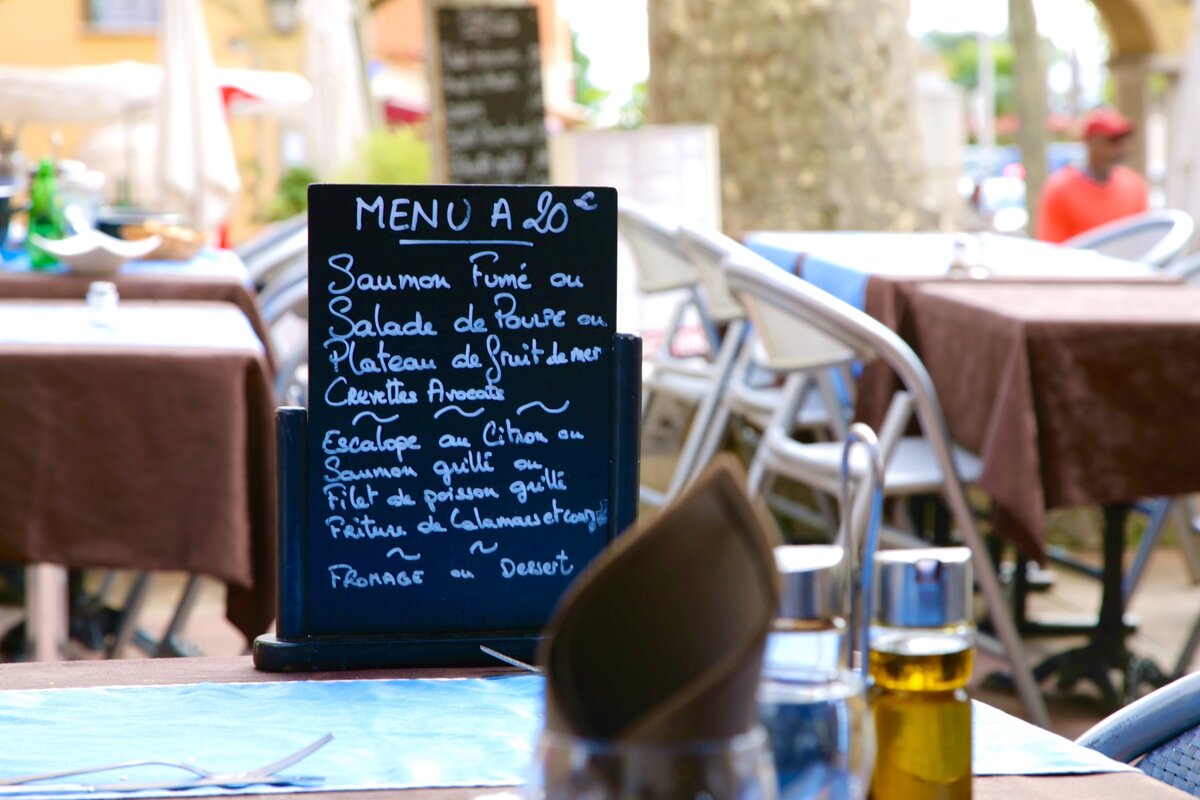 MENU A 20€
Saumon Fumé ou
Salade de POULPE ou
Plateau de fruit de mer
Crevettes Avocats
Escalope au Citron ou
Saumon grillé ou
Filet de poisson grillé
Friture de Calamars et
FROMAGE ou Dessert